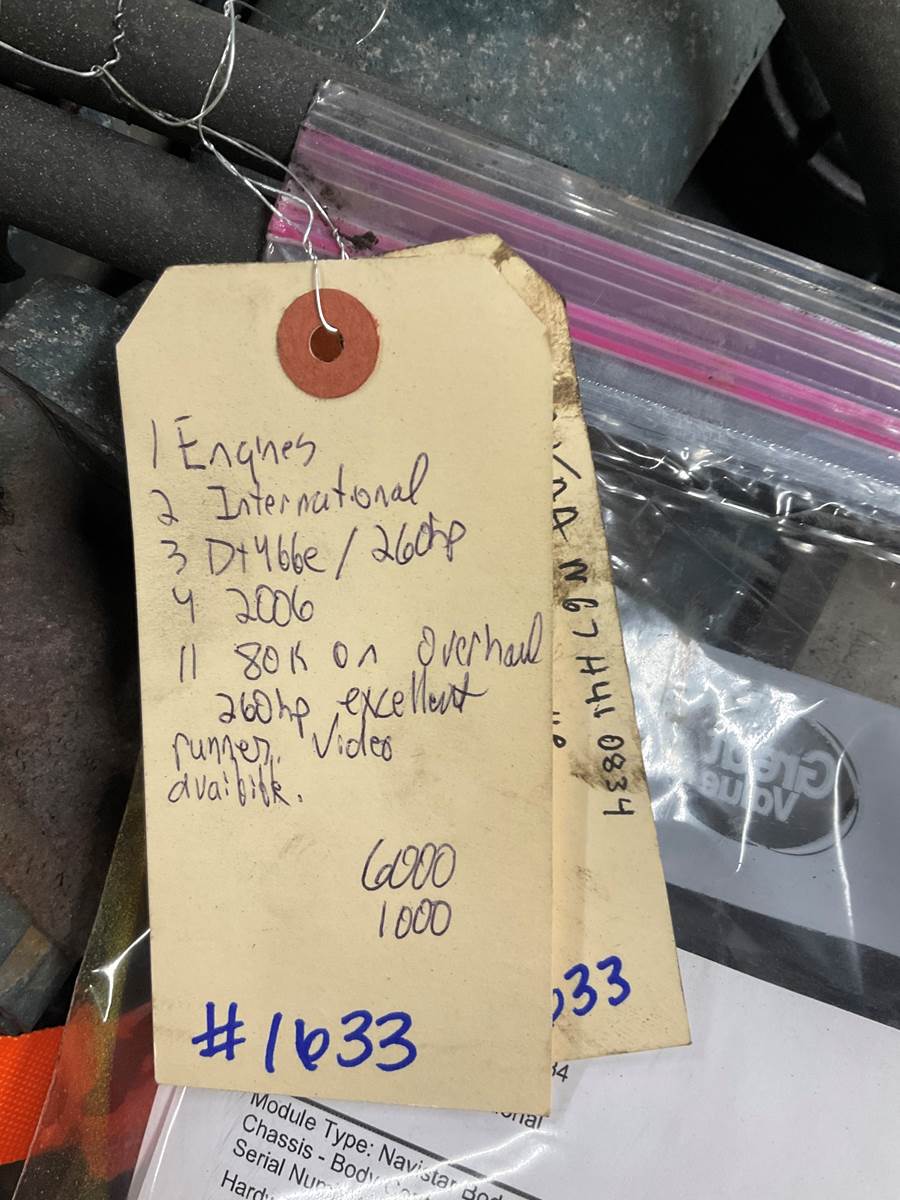 1 Engnes
2 International
3 Dt466e / 260hp
4 2006
11 80K on Overhaul
260hp excellent
runner. Video
avaibible.
6000
1000
#1633
N67H41 0834
33
34
Module Type: Navistar Bod
Chassis - Body
Serial Num
Hard
Great
Value